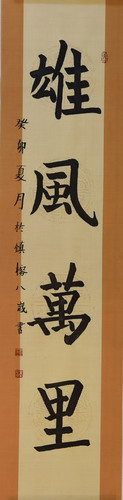 雄風萬里
癸卯夏月於鎮榕八歲書